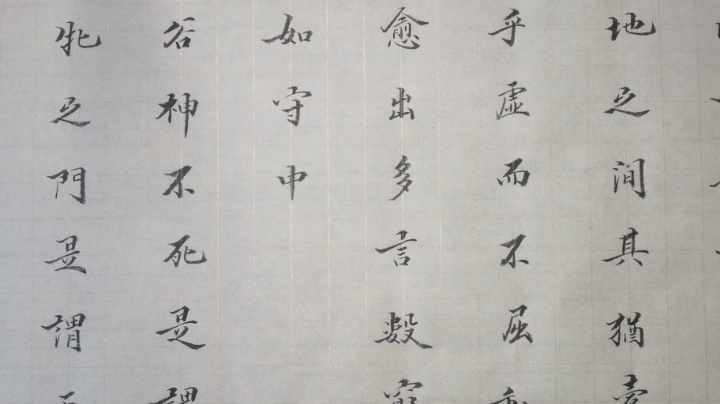 地之间其猶橐
乎虛而不屈動
愈出多言數窮
如守中
谷神不死是謂
牝之門是謂天